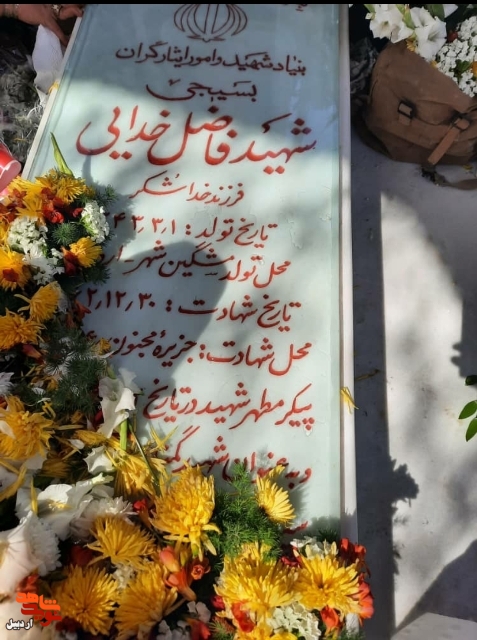 شهید
بنیاد شهید و امور ایثارگران
بسیجی
شهید فاضل خدایی
فرزند خداشکر
تاریخ تولد : ۴۳٫۳٫۱
محل تولد مشگین شهر - ار
تاریخ شهادت : ۲٫۱۲٫۳۰
محل شهادت : جزیرهٔ مجنون
پیکر مطهر شهید در تاریخ
شهید
اردبیل